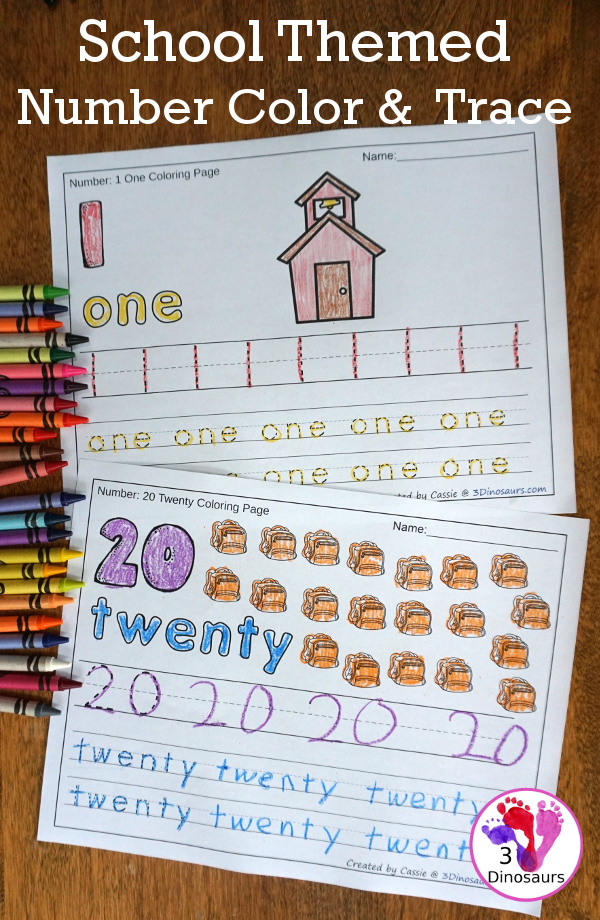 School Themed
Number Color & Trace
Name:
Number: 1 One Coloring Page
1
one
1 1 1 1 1 1 1 1 1
one one one one one
one one one
by Cassie @ 3Dinosaurs.com
Number: 20 Twenty Coloring Page
Name:
20
twenty
20 20 20 20
twenty twenty twenty
twenty twenty twent
Created by Cassie @ 3Dinosau
3
Dinosaurs